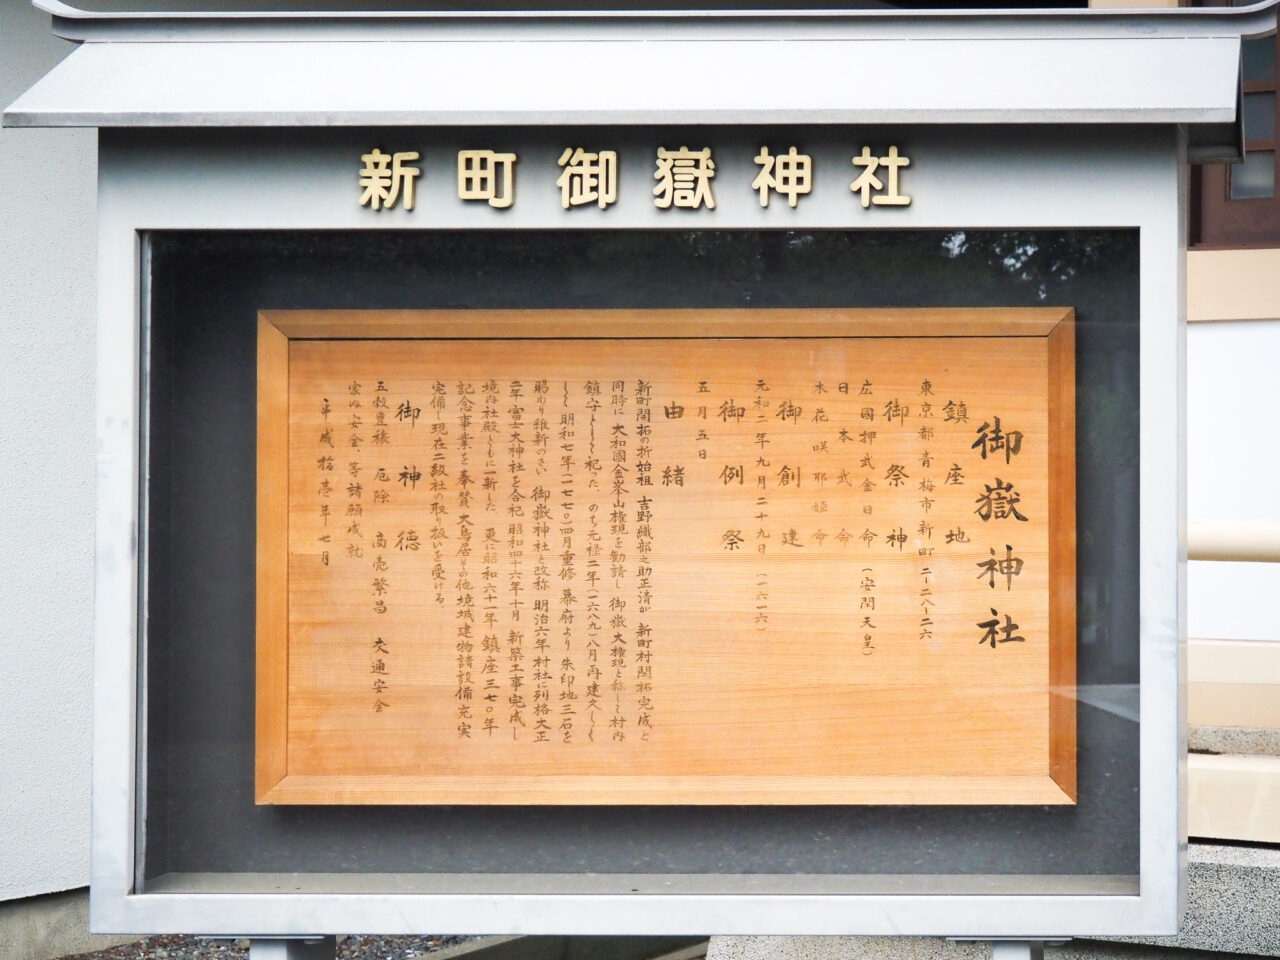 新町御嶽神社
御嶽神社
鎮座地
東京都青梅市新町二-二八-二六
御祭神
広國押武金日命(安閑天皇)
日本武命
木花咲耶姫命
御創建
元和二年九月二十九日(一六一六)
御例祭
五月五日
由緒
新町開拓の折始祖吉野織部之助正清が 新町村開拓完成と
同時に大和國金峯山権現を勧請し 御嶽大権現と称して村内
鎮守として祀った、のち元禄二年(一六八九)八月再建久しく
して明和七年(一七七〇)四月重修 幕府より 朱印地三石を
賜わり維新のさい 御嶽神社と改称 明治六年村社に列格大正
二年 富士大神社を合祀 昭和四十六年十月 新築工事完成し
境内社殿ともに一新した 更に昭和六十一年 鎮座三七〇年
記念事業を奉賛大鳥居その他境域建物諸設備充実
完備し現在二級社の取り扱いを受ける、
御神徳
五穀豊穣 厄除 商売繁昌 交通安全
家内安全、等諸願成就
平成拾壱年七月